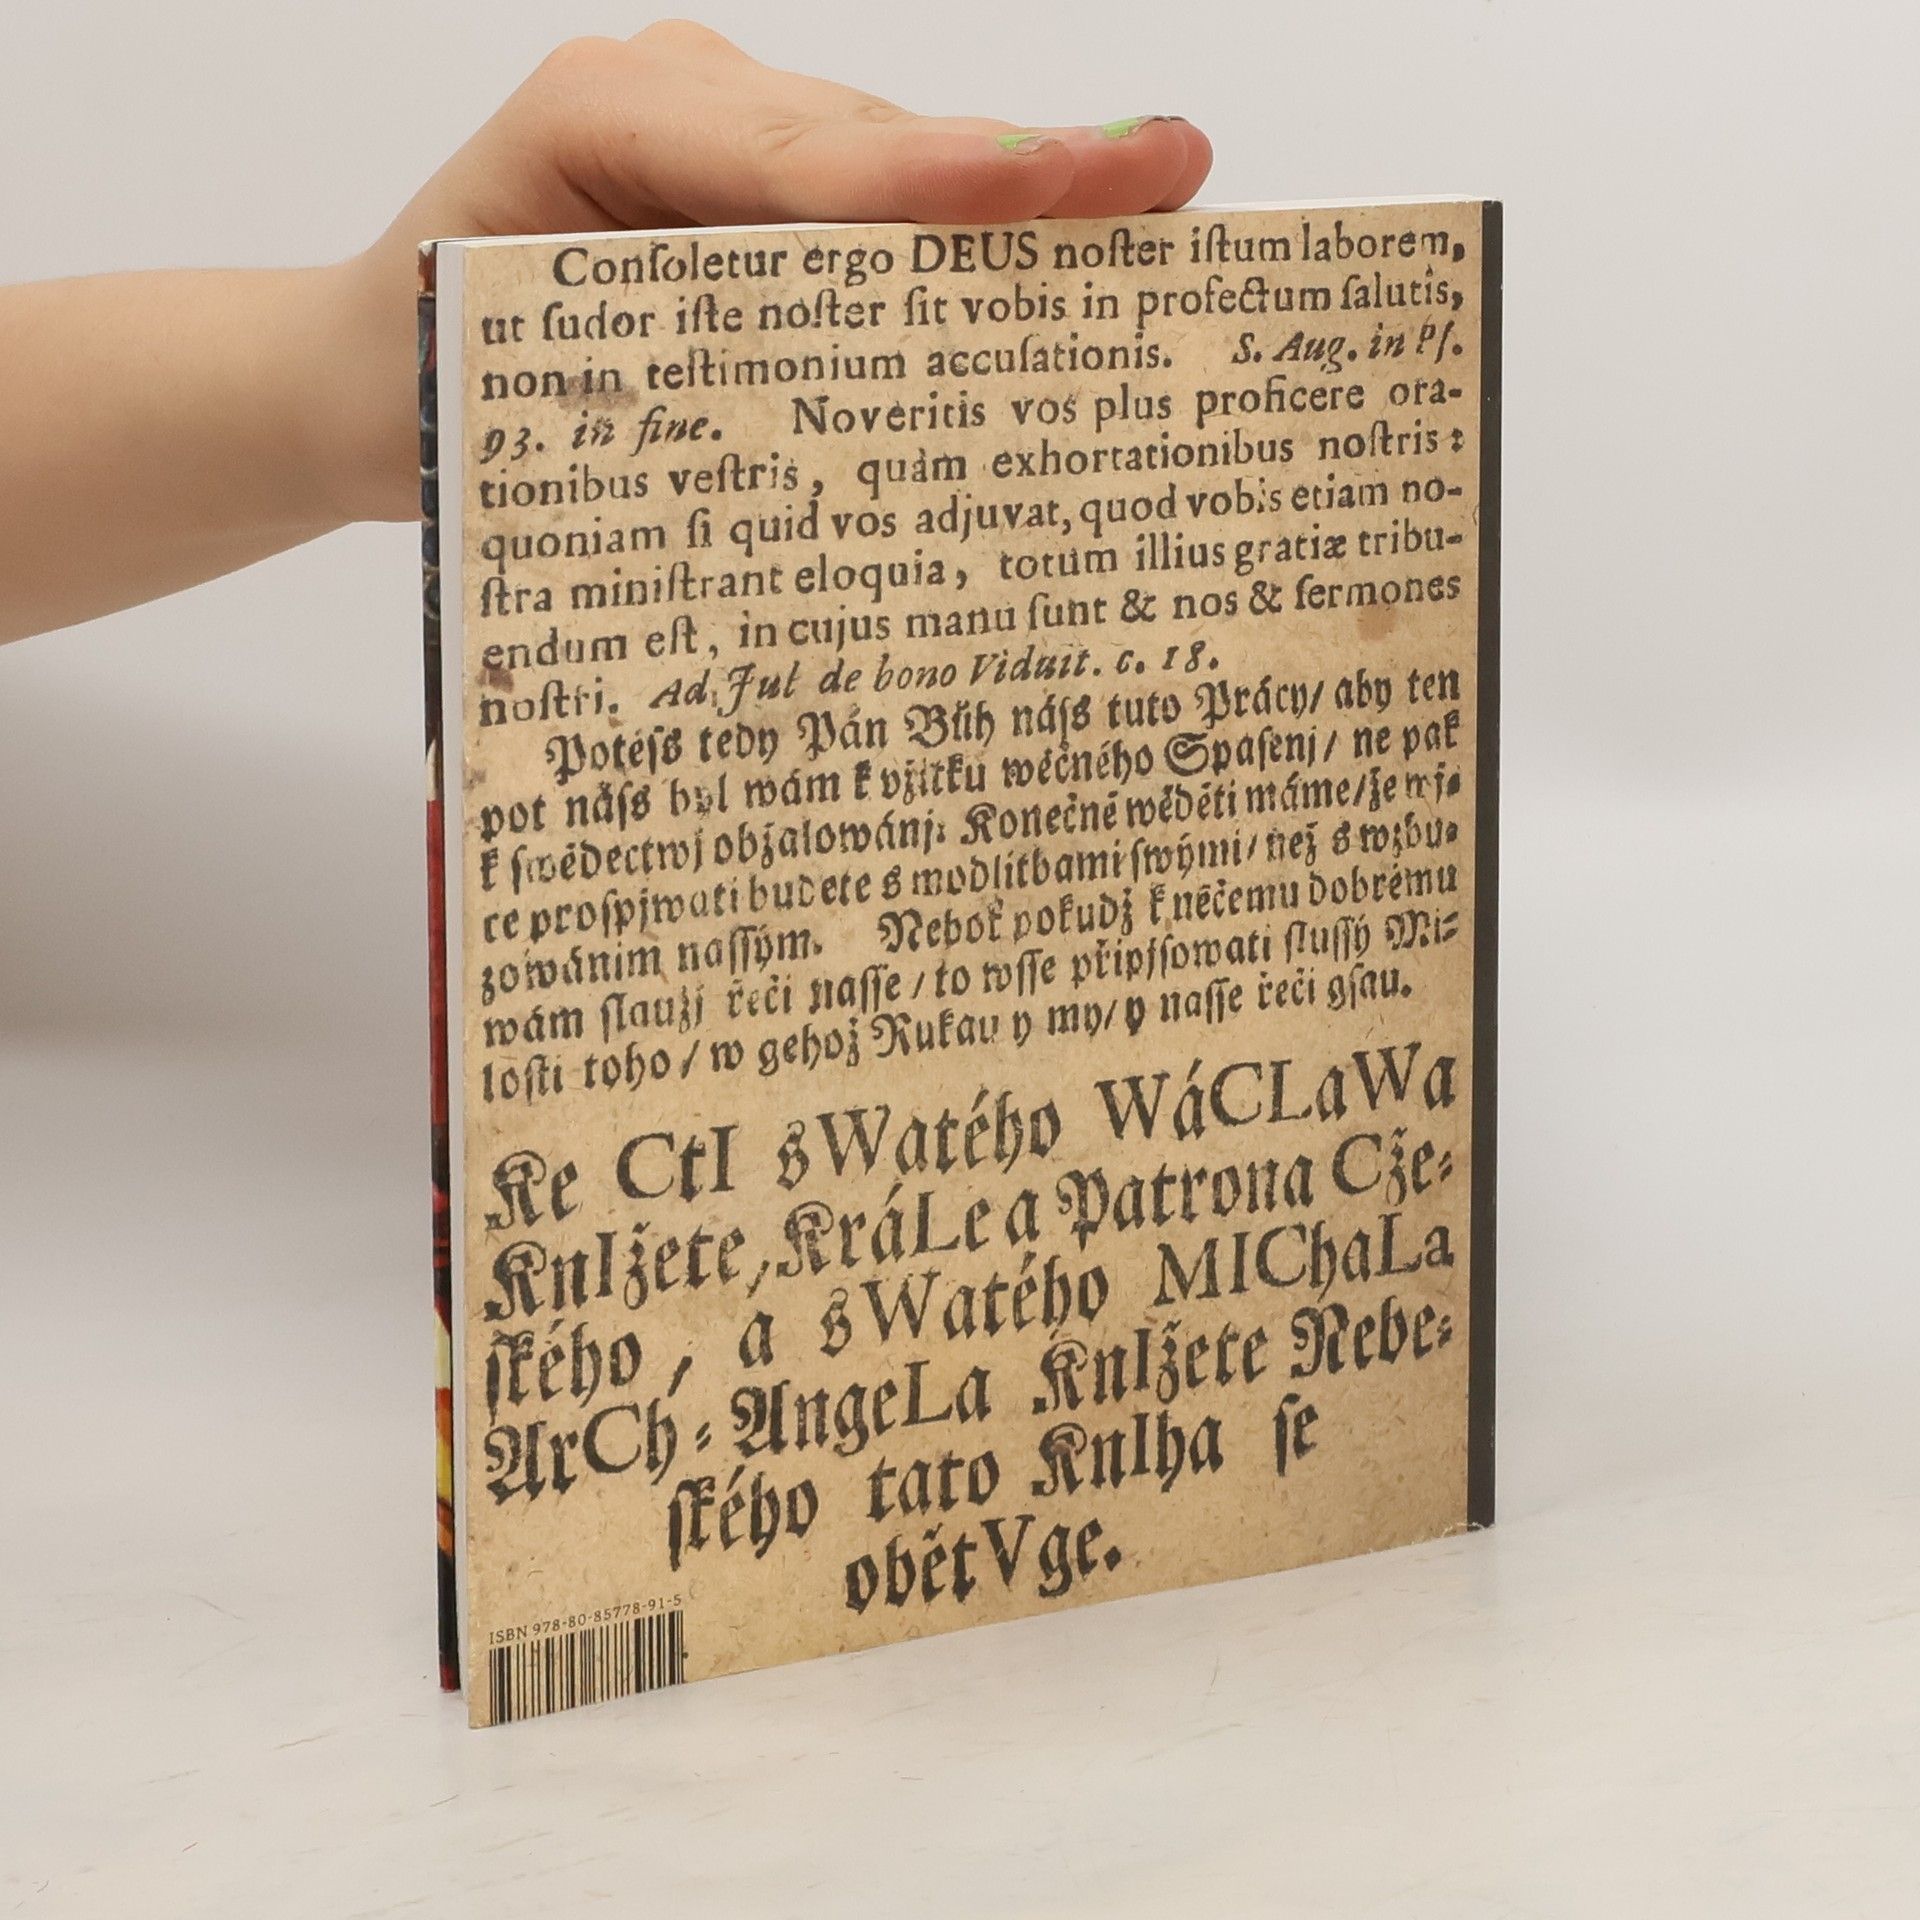 Conſoletur ergo DEUS noſter iſtum laborem,
ut ſudor iſte noſter ſit vobis in profectum ſalutis,
non in teſtimonium accuſationis. S. Aug. in Pſ.
93. in fine. Noveritis vos plus proficere ora-
tionibus veſtris, quàm exhortationibus noſtris:
quoniam ſi quid vos adjuvat, quod vobis etiam no-
ſtra miniſtrant eloquia, totum illius gratiæ tribu-
endum eſt, in cujus manu ſunt & nos & ſermones
noſtri. Ad Jul de bono Viduit. c. 18.
Potěſs tedy Pán Bůh náſs tuto Prácy/ aby ten
pot náſs byl wám k vžitku wěčného Spaſenj/ ne pak
k ſwědectwj obžalowánj: Konečně wěděti máme/že wj-
ce proſpjwati budete s modlitbami ſwými/ než s wzbu-
zowánim naſſým. Neboť pokudž k něčemu dobrému
wám ſlaužj řeči naſſe/ to wſſe připjſowati ſluſſý Mi-
loſti toho/ w gehož Rukau y my/ y naſſe řeči gſau.
Ke CtI sWatého WáCLaWa
KnIžete, KráLe a Patrona Cže-
ſkého, a sWatého MIChaLa
ArCh-AngeLa KnIžete Nebe-
ſkého tato KnIha ſe
obětVge.
ISBN 978-80-85778-91-5